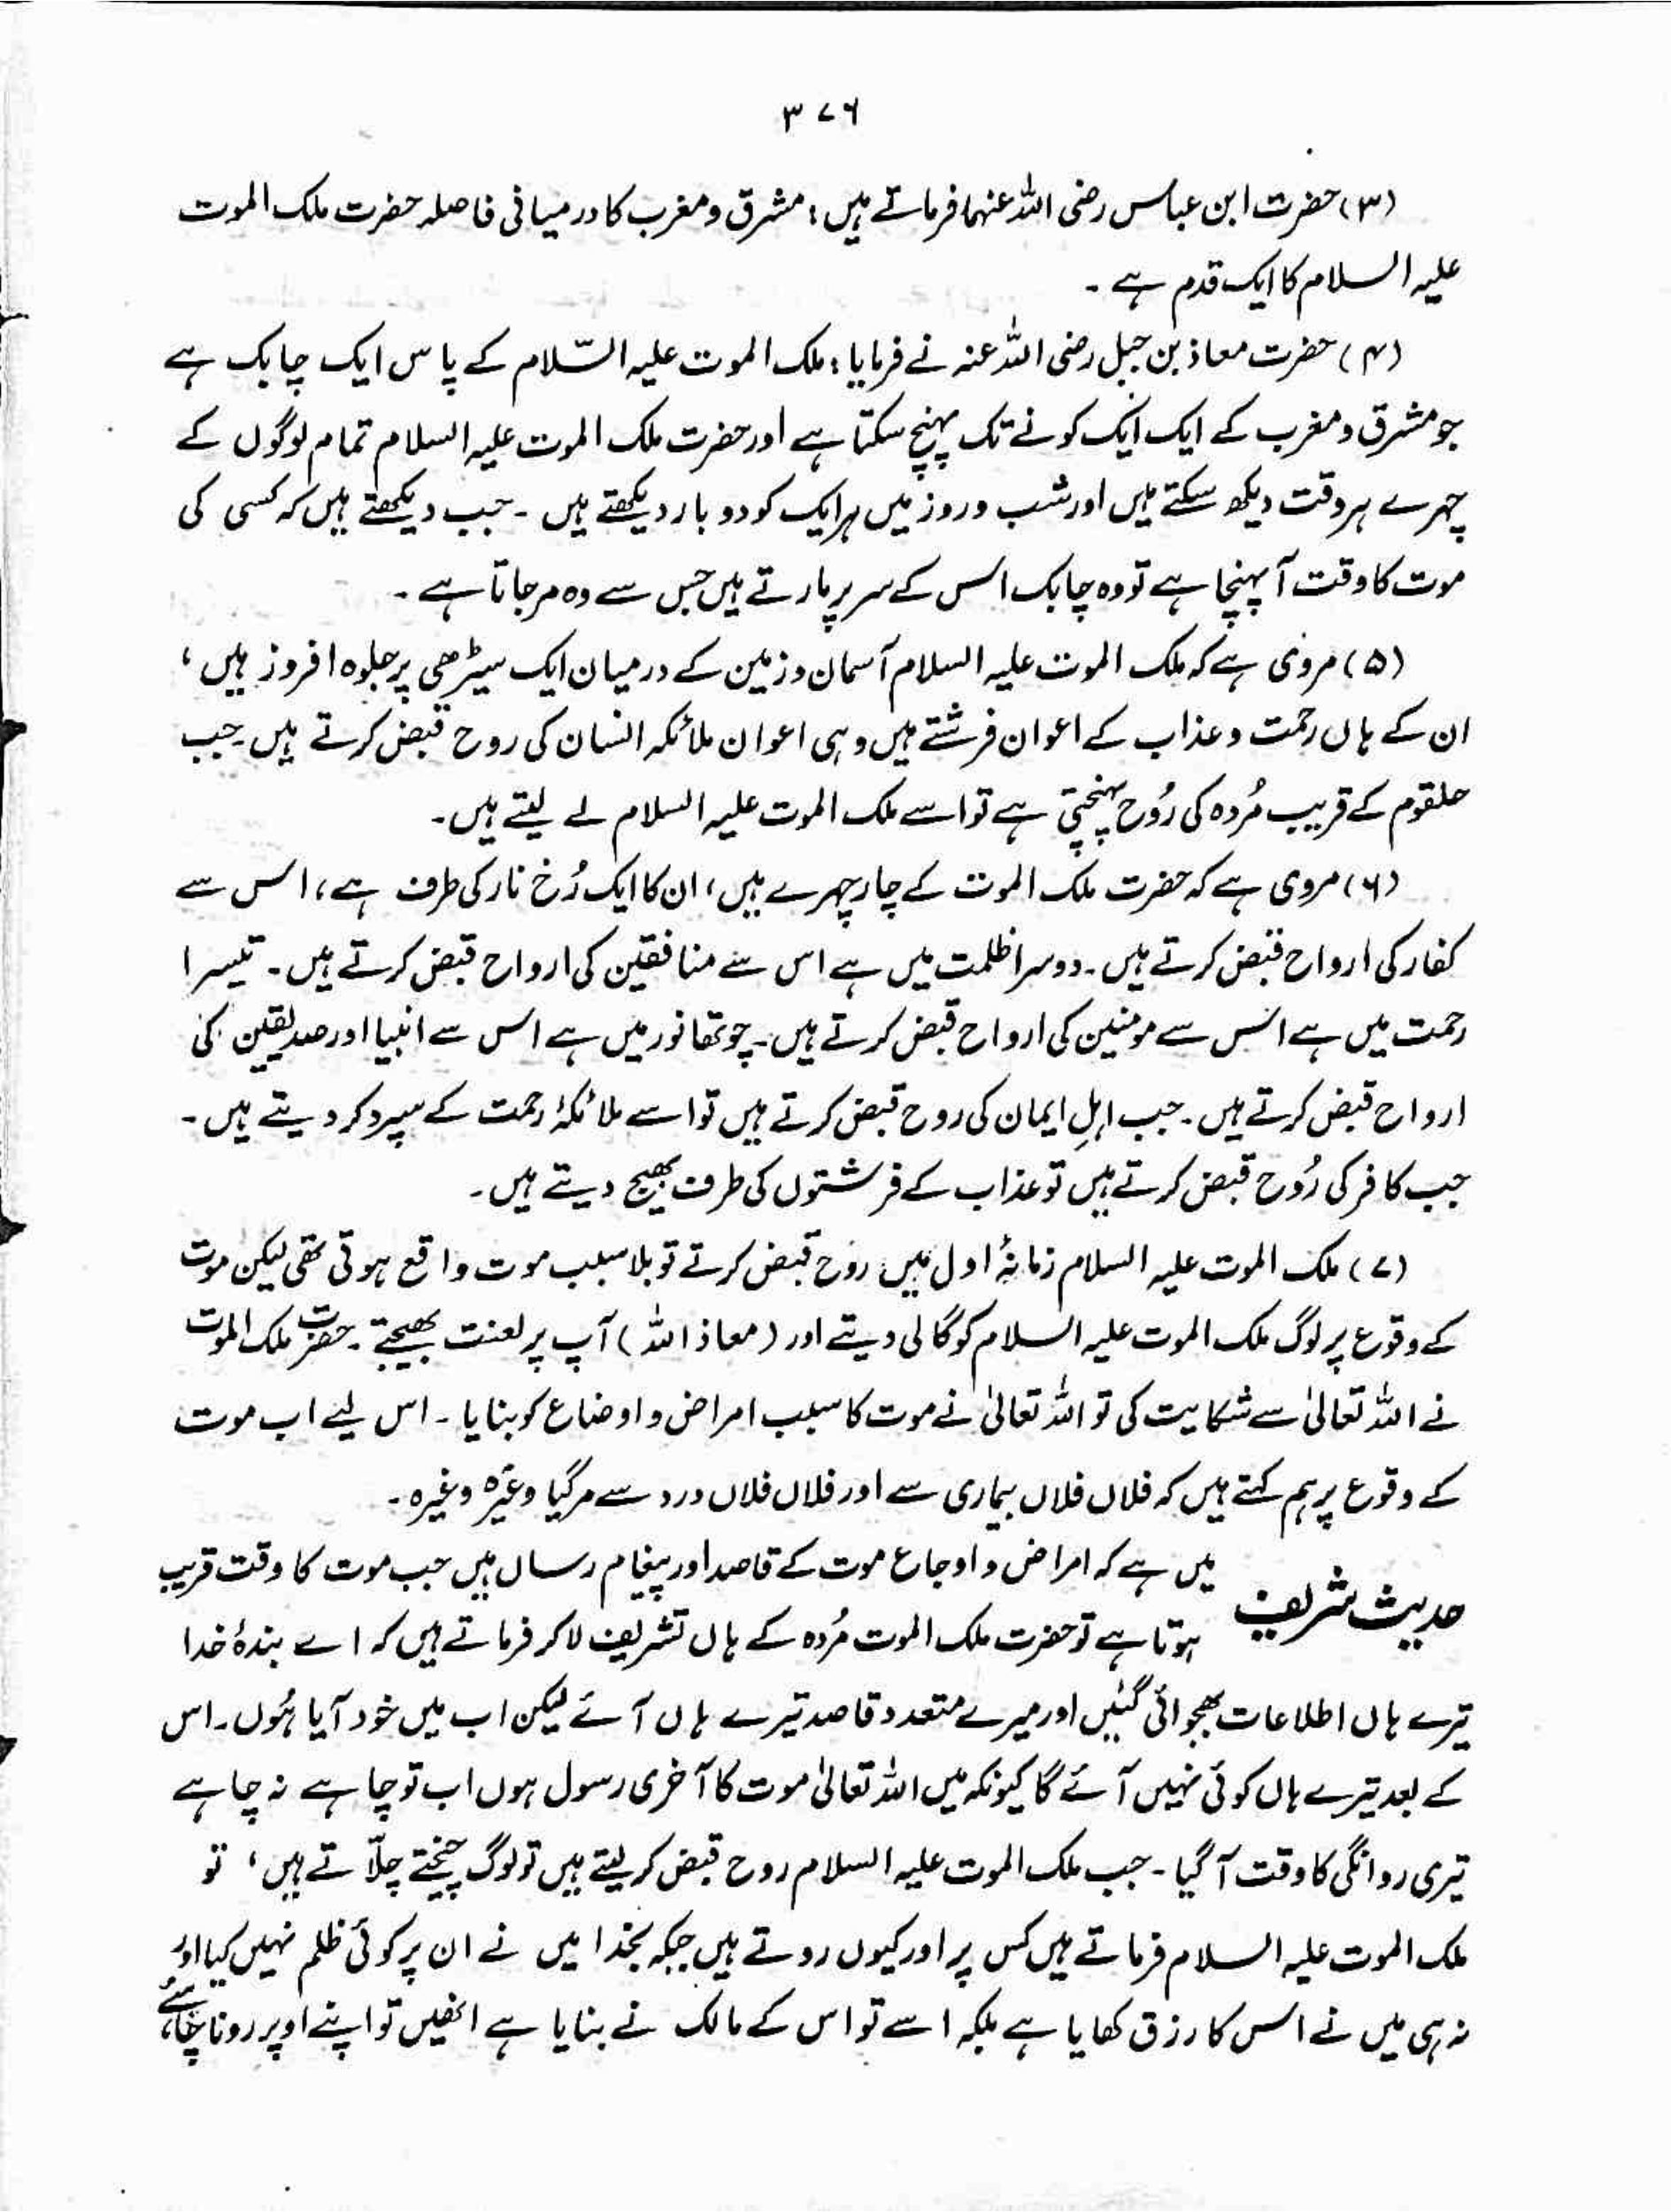 ۳۷۶
(۳) حضرت ابن عباس رضی اللہ عنہما فرماتے ہیں : مشرق و مغرب کا درمیانی فاصلہ حضرت ملک الموت
علیہ السلام کا ایک قدم ہے ۔
(۴) حضرت معاذ بن جبل رضی اللہ عنہ نے فرمایا : ملک الموت علیہ السّلام کے پاس ایک چابک ہے
جو مشرق و مغرب کے ایک ایک کونے تک پہنچ سکتا ہے اور حضرت ملک الموت علیہ السلام تمام لوگوں کے
چہرے ہر وقت دیکھ سکتے ہیں اور شب و روز میں ہر ایک کو دو بار دیکھتے ہیں ۔ جب دیکھتے ہیں کہ کسی کی
موت کا وقت آپہنچا ہے تو وہ چابک اس کے سر پر مارتے ہیں جس سے وہ مر جاتا ہے ۔
(۵) مروی ہے کہ ملک الموت علیہ السلام آسمان و زمین کے درمیان ایک سیڑھی پر جلوہ افروز ہیں ،
ان کے ہاں رحمت و عذاب کے اعوان فرشتے ہیں وہی اعوان ملائکہ انسان کی روح قبض کرتے ہیں ۔ جب
حلقوم کے قریب مُردہ کی رُوح پہنچتی ہے تو اسے ملک الموت علیہ السلام لے لیتے ہیں۔
(۶) مروی ہے کہ حضرت ملک الموت کے چار چہرے ہیں ، ان کا ایک رُخ نار کی طرف ہے ، اس سے
کفار کی ارواح قبض کرتے ہیں ۔ دوسرا ظلمت میں ہے اس سے منافقین کی ارواح قبض کرتے ہیں ۔ تیسرا
رحمت میں ہے اس سے مومنین کی ارواح قبض کرتے ہیں ۔ چوتھا نور میں ہے اس سے انبیا اور صدیقین کی
ارواح قبض کرتے ہیں ۔ جب اہلِ ایمان کی روح قبض کرتے ہیں تو اسے ملائکۂ رحمت کے سپرد کر دیتے ہیں ۔
جب کافر کی رُوح قبض کرتے ہیں تو عذاب کے فرشتوں کی طرف بھیج دیتے ہیں ۔
(۷) ملک الموت علیہ السلام زمانۂ اول میں روح قبض کرتے تو بلا سبب موت واقع ہوتی تھی لیکن موت
کے وقوع پر لوگ ملک الموت علیہ السلام کو گالی دیتے اور (معاذ اللہ) آپ پر لعنت بھیجتے ۔ حضرت ملک الموت
نے اللہ تعالیٰ سے شکایت کی تو اللہ تعالیٰ نے موت کا سبب امراض و اوضاع کو بنایا ۔ اس لیے اب موت
کے وقوع پر ہم کہتے ہیں کہ فلاں فلاں بیماری سے اور فلاں فلاں درد سے مر گیا وغیرہ وغیرہ ۔
حدیث شریف میں ہے کہ امراض و اوجاع موت کے قاصد اور پیغام رساں ہیں جب موت کا وقت قریب
ہوتا ہے تو حضرت ملک الموت مُردہ کے ہاں تشریف لاکر فرماتے ہیں کہ اے بندۂ خدا
تیرے ہاں اطلاعات بھجوائی گئیں اور میرے متعدد قاصد تیرے ہاں آئے لیکن اب میں خود آیا ہُوں ۔ اس
کے بعد تیرے ہاں کوئی نہیں آئے گا کیونکہ میں اللہ تعالیٰ موت کا آخری رسول ہوں اب تو چاہے نہ چاہے
تیری روانگی کا وقت آگیا ۔ جب ملک الموت علیہ السلام روح قبض کر لیتے ہیں تو لوگ چیختے چلّاتے ہیں ، تو
ملک الموت علیہ السلام فرماتے ہیں کس پر اور کیوں روتے ہیں جبکہ بخدا میں نے ان پر کوئی ظلم نہیں کیا اور
نہ ہی میں نے اس کا رزق کھایا ہے بلکہ اسے تو اس کے مالک نے بنایا ہے انھیں تو اپنے اوپر رونا چاہئے